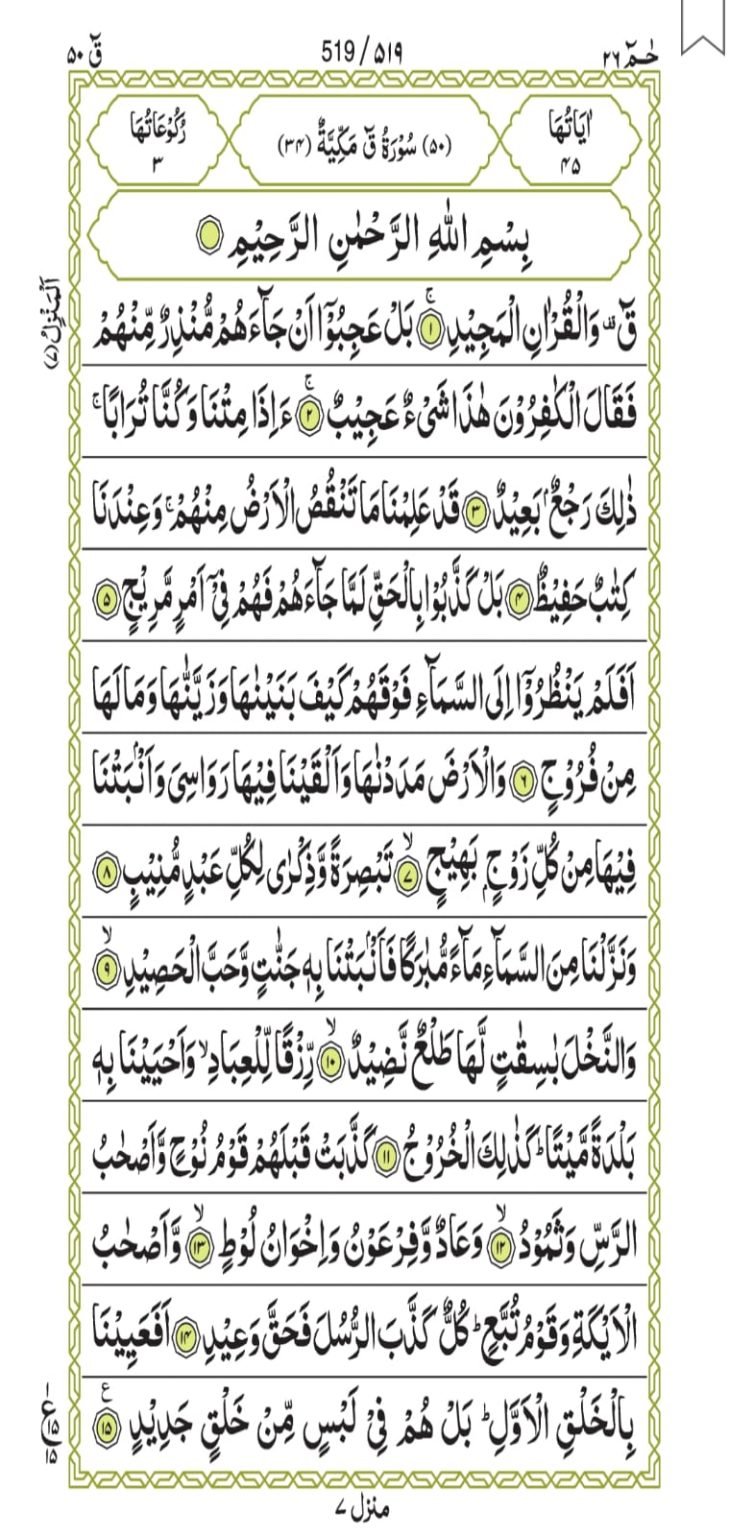 حٰمٓ ٢٦
519 / ۵۱۹
قٓ ۵۰
اٰيَاتُهَا
۴۵
(۵۰) سُوْرَةُ قٓ مَكِّيَّةٌ (۳۴)
رُكُوْعَاتُهَا
۳
بِسْمِ اللّٰهِ الرَّحْمٰنِ الرَّحِيْمِ
اَلْمَنْزِلُ (۷)
قٓ ۫ وَالْقُرْاٰنِ الْمَجِيْدِ ۚ‏ ﴿۱﴾ بَلْ عَجِبُوْۤا اَنْ جَآءَهُمْ مُّنْذِرٌ مِّنْهُمْ
فَقَالَ الْكٰفِرُوْنَ هٰذَا شَیْءٌ عَجِيْبٌ ۚ ﴿۲﴾ ءَاِذَا مِتْنَا وَكُنَّا تُرَابًا ۚ
ذٰلِكَ رَجْعٌۢ بَعِيْدٌ ﴿۳﴾ قَدْ عَلِمْنَا مَا تَنْقُصُ الْاَرْضُ مِنْهُمْ ۚ وَعِنْدَنَا
كِتٰبٌ حَفِيْظٌ ﴿۴﴾ بَلْ كَذَّبُوْا بِالْحَقِّ لَمَّا جَآءَهُمْ فَهُمْ فِیْۤ اَمْرٍ مَّرِيْجٍ ﴿۵﴾
اَفَلَمْ يَنْظُرُوْۤا اِلَی السَّمَآءِ فَوْقَهُمْ كَيْفَ بَنَيْنٰهَا وَزَيَّنّٰهَا وَمَا لَهَا
مِنْ فُرُوْجٍ ﴿۶﴾ وَالْاَرْضَ مَدَدْنٰهَا وَاَلْقَيْنَا فِيْهَا رَوَاسِیَ وَاَنْۢبَتْنَا
فِيْهَا مِنْ كُلِّ زَوْجٍۭ بَهِيْجٍ ۙ ﴿۷﴾ تَبْصِرَةً وَّذِكْرٰی لِكُلِّ عَبْدٍ مُّنِيْبٍ ﴿۸﴾
وَنَزَّلْنَا مِنَ السَّمَآءِ مَآءً مُّبٰرَكًا فَاَنْۢبَتْنَا بِهٖ جَنّٰتٍ وَّحَبَّ الْحَصِيْدِ ۙ ﴿۹﴾
وَالنَّخْلَ بٰسِقٰتٍ لَّهَا طَلْعٌ نَّضِيْدٌ ۙ ﴿۱۰﴾ رِّزْقًا لِّلْعِبَادِ ۙ وَاَحْيَيْنَا بِهٖ
بَلْدَةً مَّيْتًا ؕ كَذٰلِكَ الْخُرُوْجُ ﴿۱۱﴾ كَذَّبَتْ قَبْلَهُمْ قَوْمُ نُوْحٍ وَّاَصْحٰبُ
الرَّسِّ وَثَمُوْدُ ۙ ﴿۱۲﴾ وَعَادٌ وَّفِرْعَوْنُ وَاِخْوَانُ لُوْطٍ ۙ ﴿۱۳﴾ وَّاَصْحٰبُ
الْاَيْكَةِ وَقَوْمُ تُبَّعٍ ؕ كُلٌّ كَذَّبَ الرُّسُلَ فَحَقَّ وَعِيْدِ ﴿۱۴﴾ اَفَعَيِيْنَا
بِالْخَلْقِ الْاَوَّلِ ؕ بَلْ هُمْ فِیْ لَبْسٍ مِّنْ خَلْقٍ جَدِيْدٍ ۧ ﴿۱۵﴾
منزل ۷